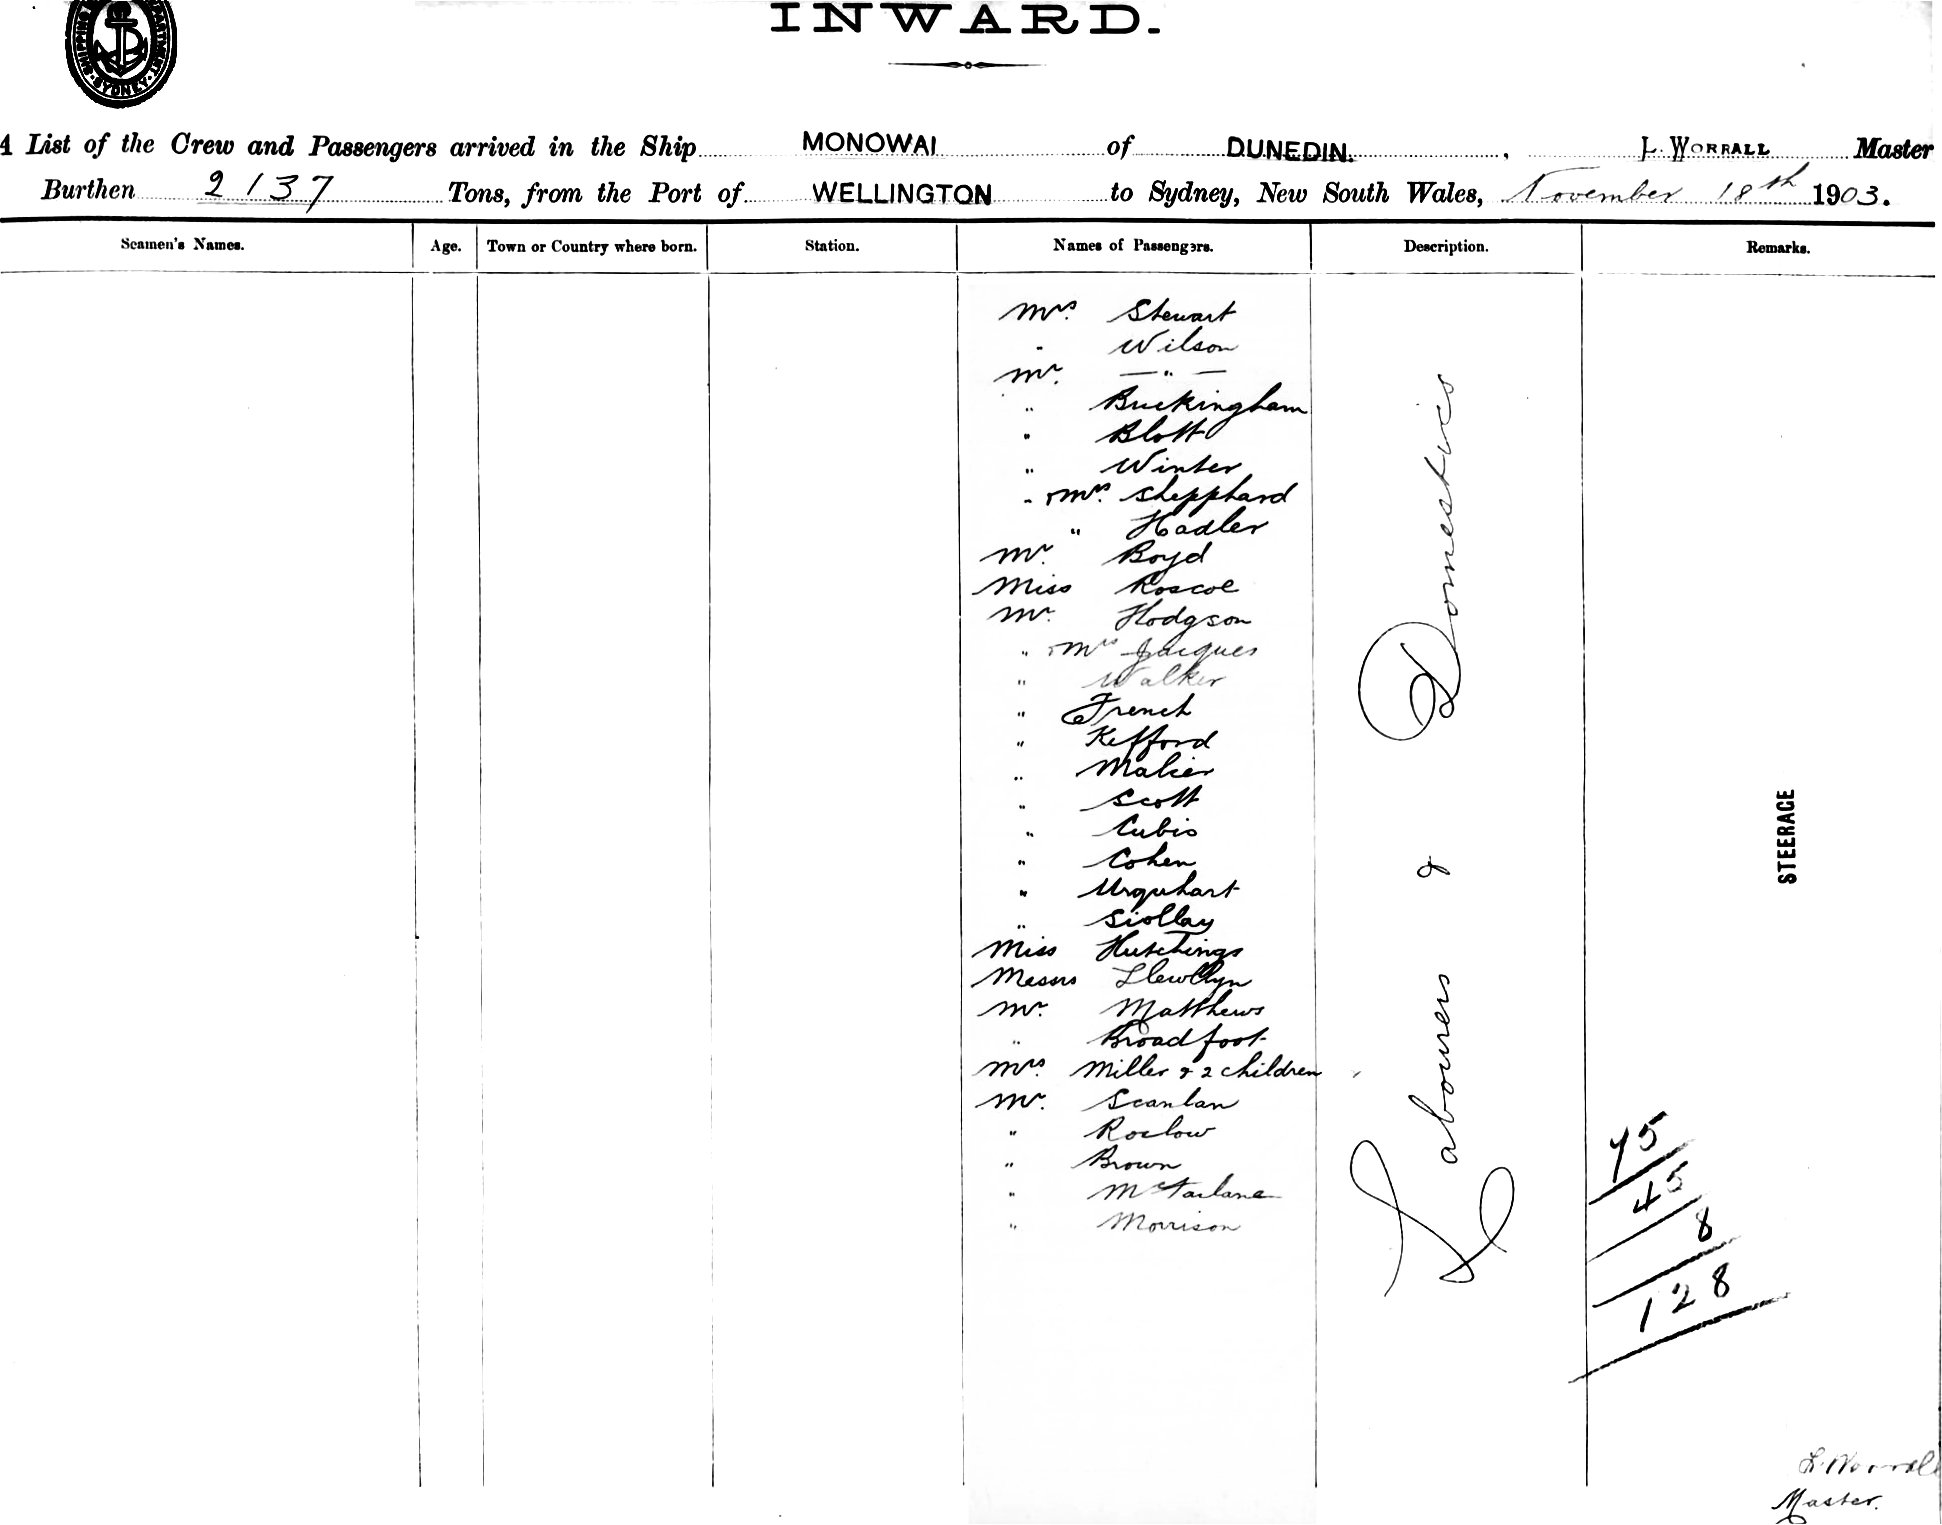 INWARD.
SHIPPING
SYDNEY
A List of the Crew and Passengers arrived in the Ship MONOWAI of DUNEDIN. , L. WORRALL Master
Burthen 2137 Tons, from the Port of WELLINGTON to Sydney, New South Wales, November 18th 1903.
Seamen's Names. Age. Town or Country where born. Station. Names of Passengers. Description. Remarks.
Mrs. Stewart
" Wilson
Mr. — " —
" Buckingham
" Blott
" Winter
" & Mrs. Shepphard
" Hadler
Mr. Boyd
Miss Roscoe
Mr. Hodgson
" & Mrs Jacques
" Walker
" French
" Kefford
"
" Scott
" Cubis
" Cohen
" Urquhart
"
Miss Hutchings
Messrs Llewllyn
Mr. Matthews
" Broadfoot
Mrs. Miller & 2 children
Mr. Scanlan
" Roelow
" Brown
" McFarlane
" Morrison
Labourers & Domestics
STEERAGE
75
45
8
128
L. Worrall
Master.